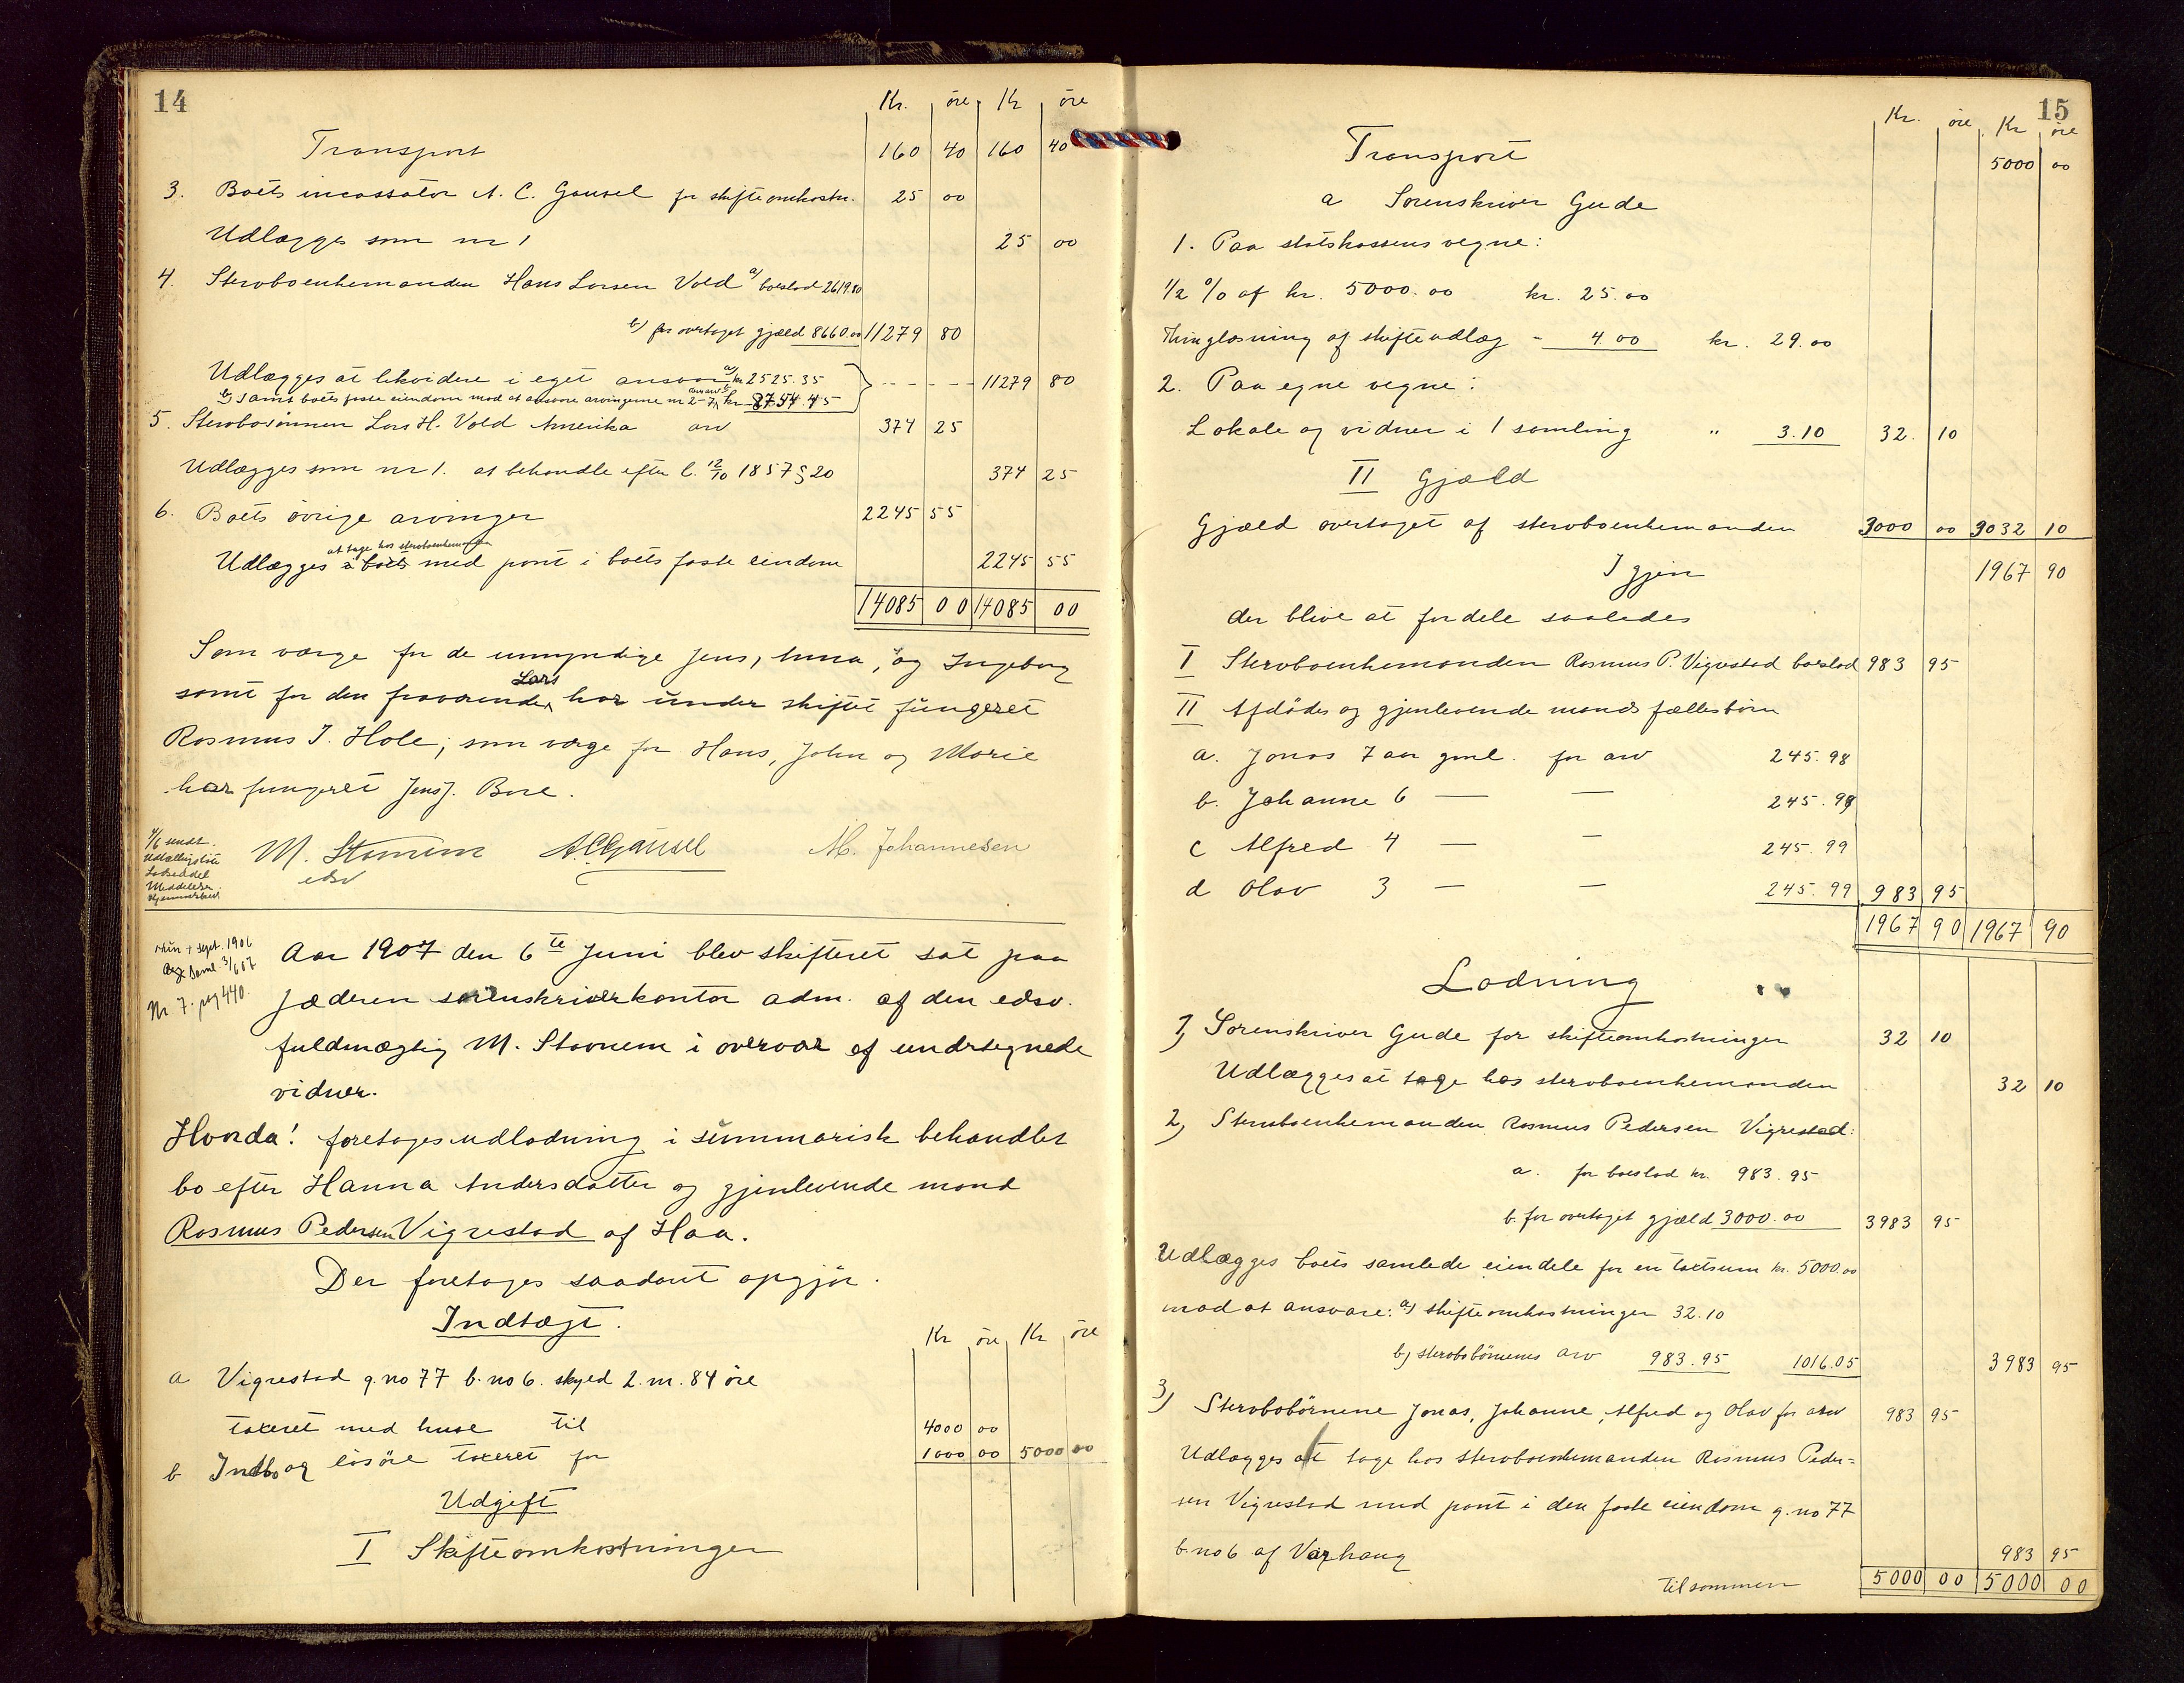 14
Kr. øre Kr øre
Transport 160 40 160 40
3. Boets incassator A. C. Gausel for skifteomkostn. 25 00
Udlægges som nr 1 25 00
4. Stervboenkemanden Hans Larsen Vold a) boeslod 2619.80
b) for overtaget gjæld 8660.00 11279 80
Udlægges at likvidere i eget ansvar a) kr 2525.35
b) samt boets faste eiendom mod at ansvare arvingerne nr 2-7 kr 8754.45 - - - - - 11279 80
5. Stervbosønnen Lars H. Vold Amerika arv 374 25
Udlægges som nr 1. at behandle efter l. 12/10 1857 § 20 374 25
6. Boets øvrige arvinger 2245 55
at tage hos stervboenkemanden
Udlægges i boets med pant i boets faste eiendom 2245 55
14085 00 14085 00
Som værge for de umyndige Jens, Anna, og Ingeborg
samt for den fraværende Lars har under skiftet fungeret
Rasmus J. Hole; som værge for Hans, John og Marie
har fungeret Jens J. Bore.
4/6 sendt
Udlodningsliste
Lodseddel
Meddelelse
Hjemmelsbrev
M. Stavnem A.C.Gausel M. Johannesen
edsv
Aar 1907 den 6te Juni blev skifteret sat paa
Reg saml. 3/6 07
Nr. 7. pag 440.
Jæderen sorenskriverkontor adm. af den edsv.
fuldmægtig M. Stavnem i overvær af undertegnede
vidner.
Hvorda! foretoges udlodning i summarisk behandlet
bo efter Hanna Andersdatter og gjenlevende mand
Rasmus Pedersen Vigrestad af Haa.
Der foretoges saadant opgjør.
Indtægt.
Kr øre Kr øre
a Vigrestad g.no 77 b.no 6. skyld 2. m. 84 øre
taxeret med huse til 4000 00
b Indbo og løsøre taxeret for 1000 00 5000 00
Udgift
I Skifteomkostninger
15
Kr. øre Kr øre
Transport 5000 00
a Sorenskriver Gude
1. Paa statskassens vegne:
1/2 % af kr. 5000.00 kr. 25.00
Thinglæsning af skifteudlæg - 4.00 kr. 29.00
2. Paa egne vegne:
Lokale og vidner i 1 samling " 3.10 32. 10
II Gjæld
Gjæld overtaget af stervboenkemanden 3000 00 3032 10
Igjen 1967 90
der blive at fordele saaledes
I Stervboenkemanden Rasmus P. Vigrestad boeslod 983 95
II Afdødes og gjenlevende mands fællesbørn
a. Jonas 7 aar gml. for arv 245.98
b. Johanne 6 — — 245.99
c Alfred 4 — — 245.99
d Olav 3 — — 245.99 983 95
1967 90 1967 90
Lodning
1) Sorenskriver Gude for skifteomkostninger 32 10
Udlægges at tage hos stervboenkemanden 32 10
2) Stervboenkemanden Rasmus Pedersen Vigrestad:
a. for boeslod kr. 983.95
b. for overtaget gjæld 3000.00 3983 95
Udlægges boets samlede eiendele for en taxtsum kr. 5000.00
mod at ansvare: a) skifteomkostninger 32.10
b) stervbobørnenes arv 983.95 1016.05 3983 95
3) Stervbobørnene Jonas, Johanne, Alfred og Olav for arv 983 95
Udlægges at tage hos stervboenkemanden Rasmus Peder=
sen Vigrestad med pant i den faste eiendom g.no 77
b.no 6 af Varhaug 983 95
tilsammen 5000 00 5000 00